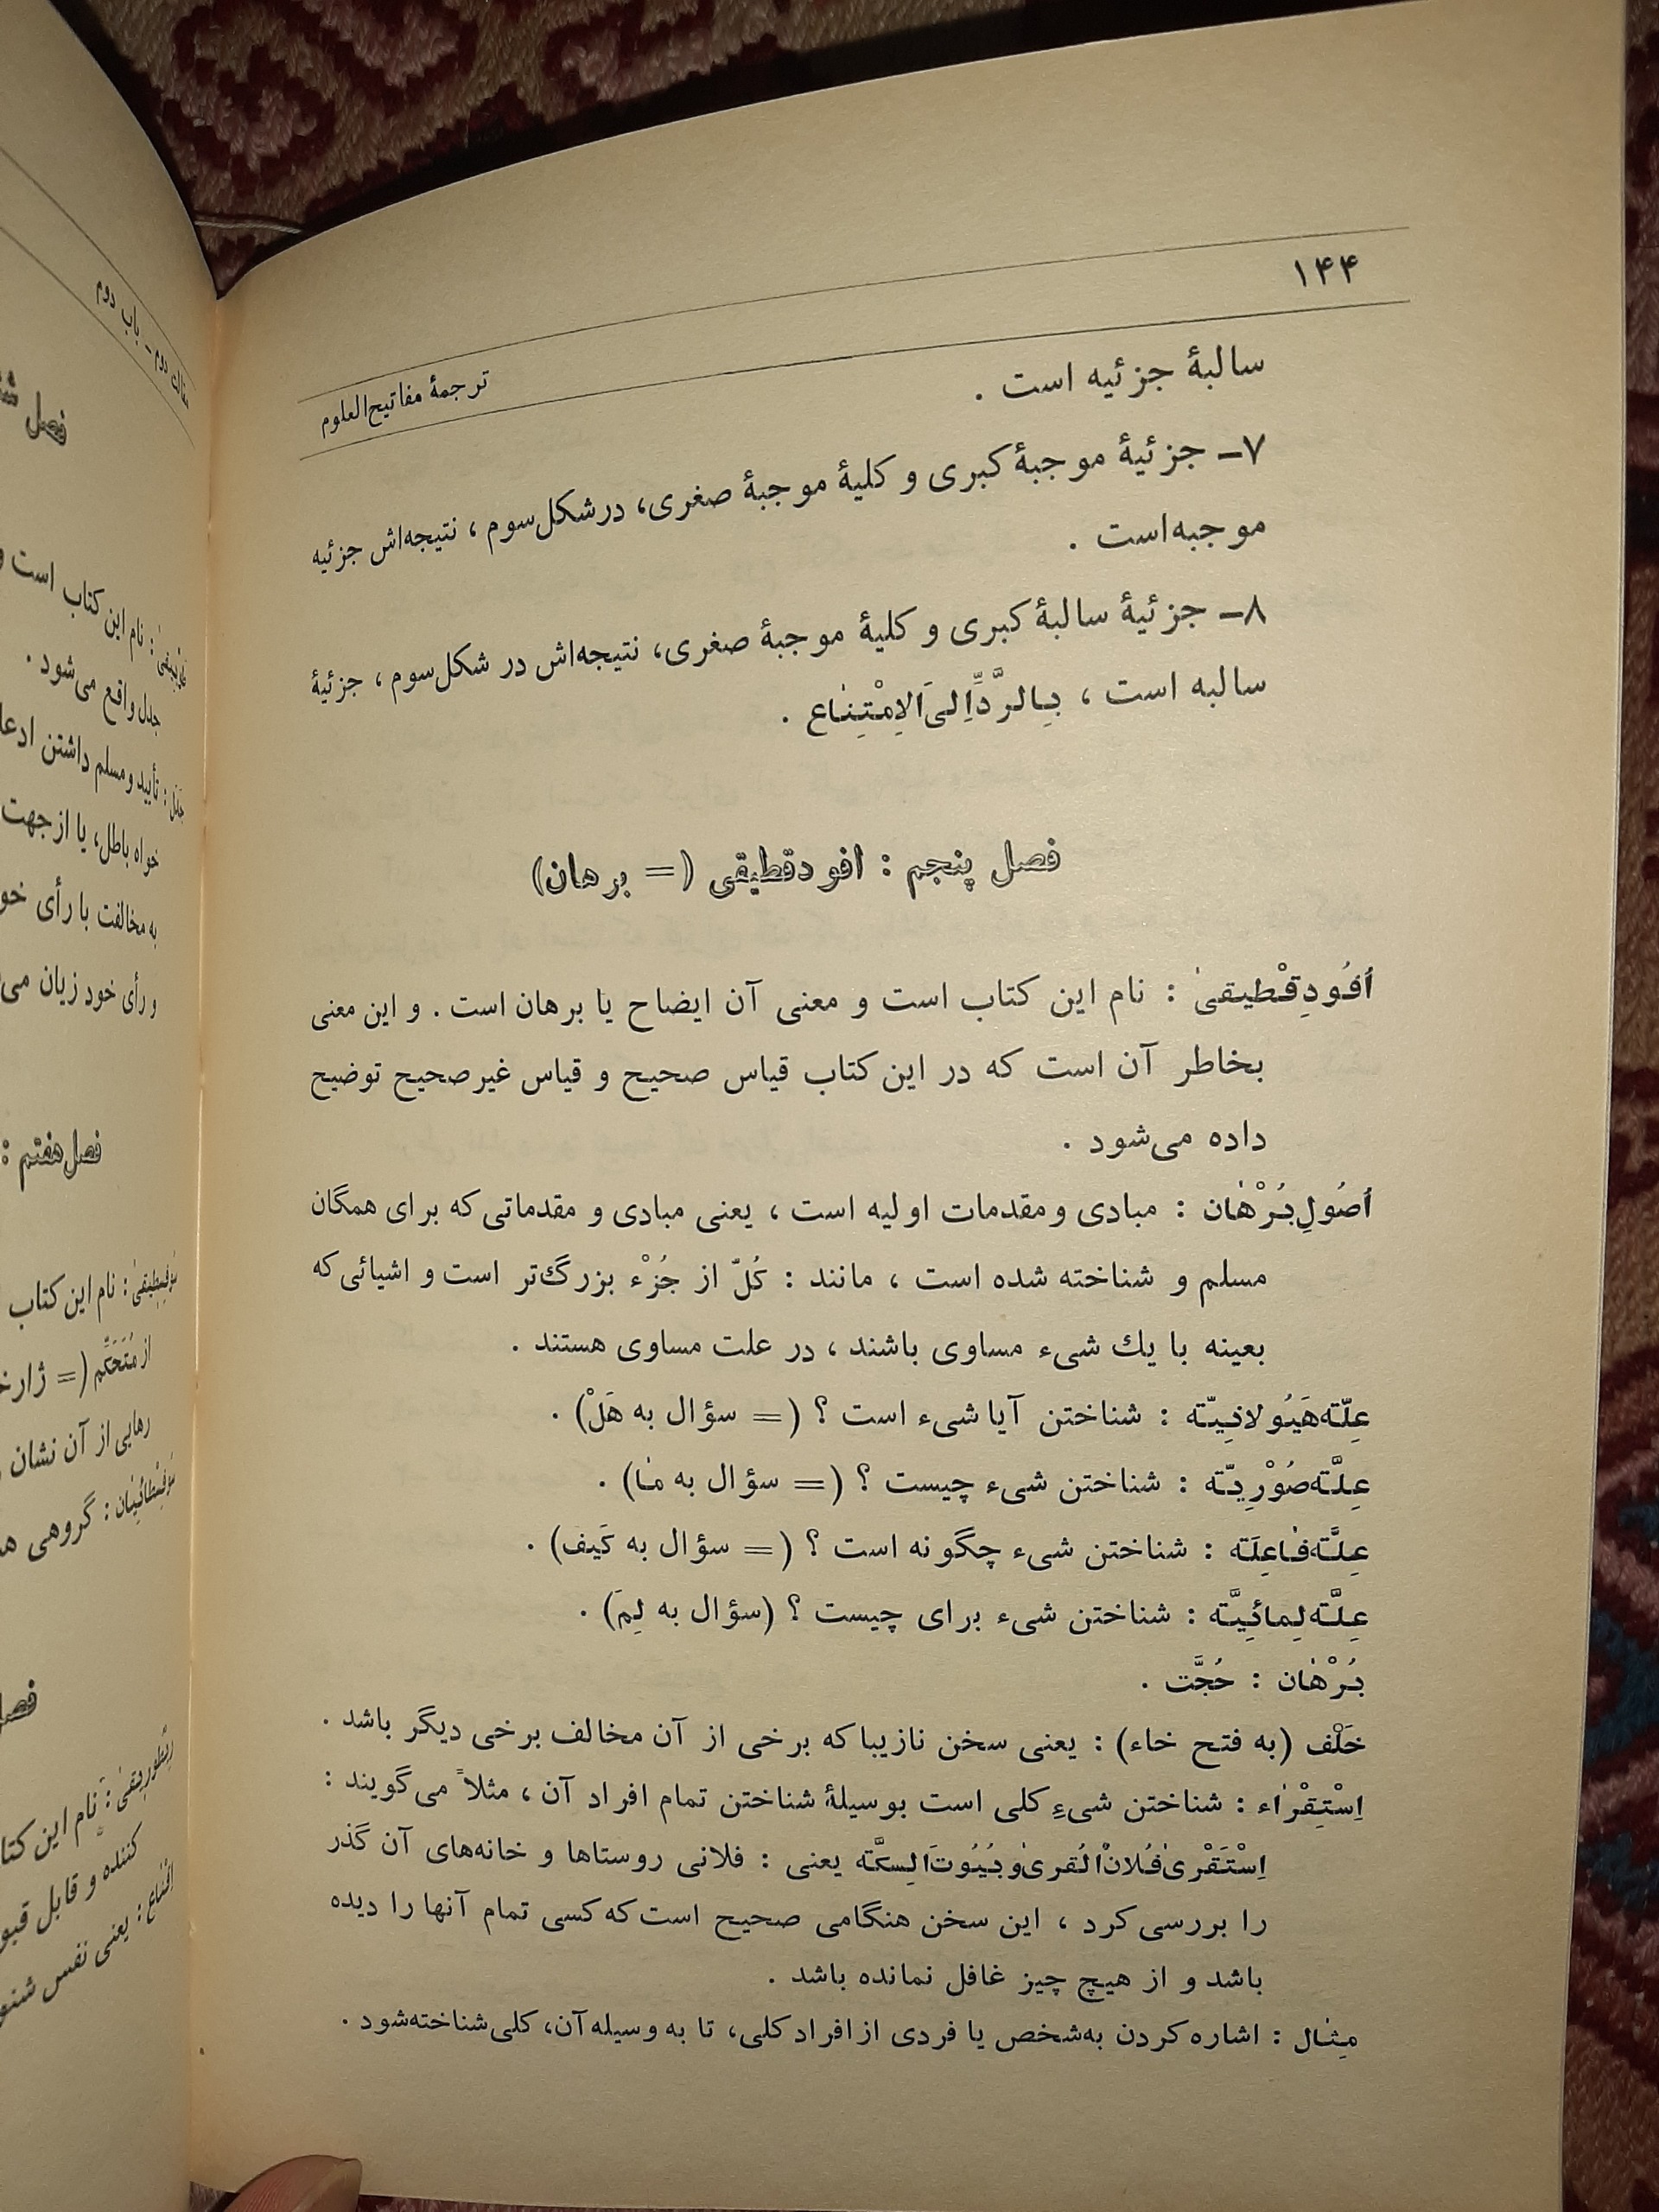 ۱۴۴
ترجمهٔ مفاتیح‌العلوم
سالبهٔ جزئیه است .
۷ــ جزئیهٔ موجبهٔ کبری و کلیهٔ موجبهٔ صغری، درشکل‌سوم ، نتیجه‌اش جزئیه
موجبه‌است .
۸ــ جزئیهٔ سالبهٔ کبری و کلیهٔ موجبهٔ صغری، نتیجه‌اش در شکل‌سوم ، جزئیهٔ
سالبه است ، بِالرَّدِّاِلیَ‌الاِمْتِنٰاع .
فصل پنجم : افودقطیقی (= برهان)
اُفُودِقْطیقیٰ : نام این کتاب است و معنی آن ایضاح یا برهان است . و این معنی
بخاطر آن است که در این کتاب قیاس صحیح و قیاس غیرصحیح توضیح
داده می‌شود .
اُصُولِ‌بُرْهٰان : مبادی ومقدمات اولیه است ، یعنی مبادی و مقدماتی‌که برای همگان
مسلم و شناخته شده است ، مانند : کُلّ از جُزْء بزرگ‌تر است و اشیائی‌که
بعینه با یك شیء مساوی باشند ، در علت مساوی هستند .
عِلّته‌هَیُولانِیّته : شناختن آیا شیء است ؟ (= سؤال به هَلْ) .
عِلَّته‌صُوْرِیّته : شناختن شیء چیست ؟ (= سؤال به مٰا) .
عِلَّته‌فٰاعِلَته : شناختن شیء چگونه است ؟ (= سؤال به کَیف) .
عِلَّته‌لِمائِیَّته : شناختن شیء برای چیست ؟ (سؤال به لِمَ) .
بُرْهٰان : حُجَّت .
خَلْف (به فتح خاء) : یعنی سخن نازیبا که برخی از آن مخالف برخی دیگر باشد .
اِسْتِقْرٰاء : شناختن شیءِ کلی است بوسیلهٔ شناختن تمام افراد آن ، مثلاً می‌گویند :
اِسْتَقْریٰ‌فُلانْ‌اَلْقریٰ‌وبُیُوتَ‌الِسکَّته یعنی : فلانی روستاها و خانه‌های آن گذر
را بررسی‌کرد ، این سخن هنگامی صحیح است‌که کسی تمام آنها را دیده
باشد و از هیچ چیز غافل نمانده باشد .
مِثٰال : اشاره‌کردن به‌شخص یا فردی از افراد کلی، تا به وسیله‌آن، کلی‌شناخته‌شود .
مقالت دوم ــ باب دوم
فصل
: نام این کتاب است و
جدل واقع می‌شود .
جَدَل : تأیید و مسلم داشتن
خواه باطل، یا از جهت
به مخالفت با رأی
و رأی خود زیان
فصل هفتم :
سُوفِسطیقیٰ : نام این کتاب
از مُتَحَکِّم (=
رهایی از آن نشان
: گروهی
ریطوریقیٰ : نام این
کننده و قابل
اقناع : یعنی نفس